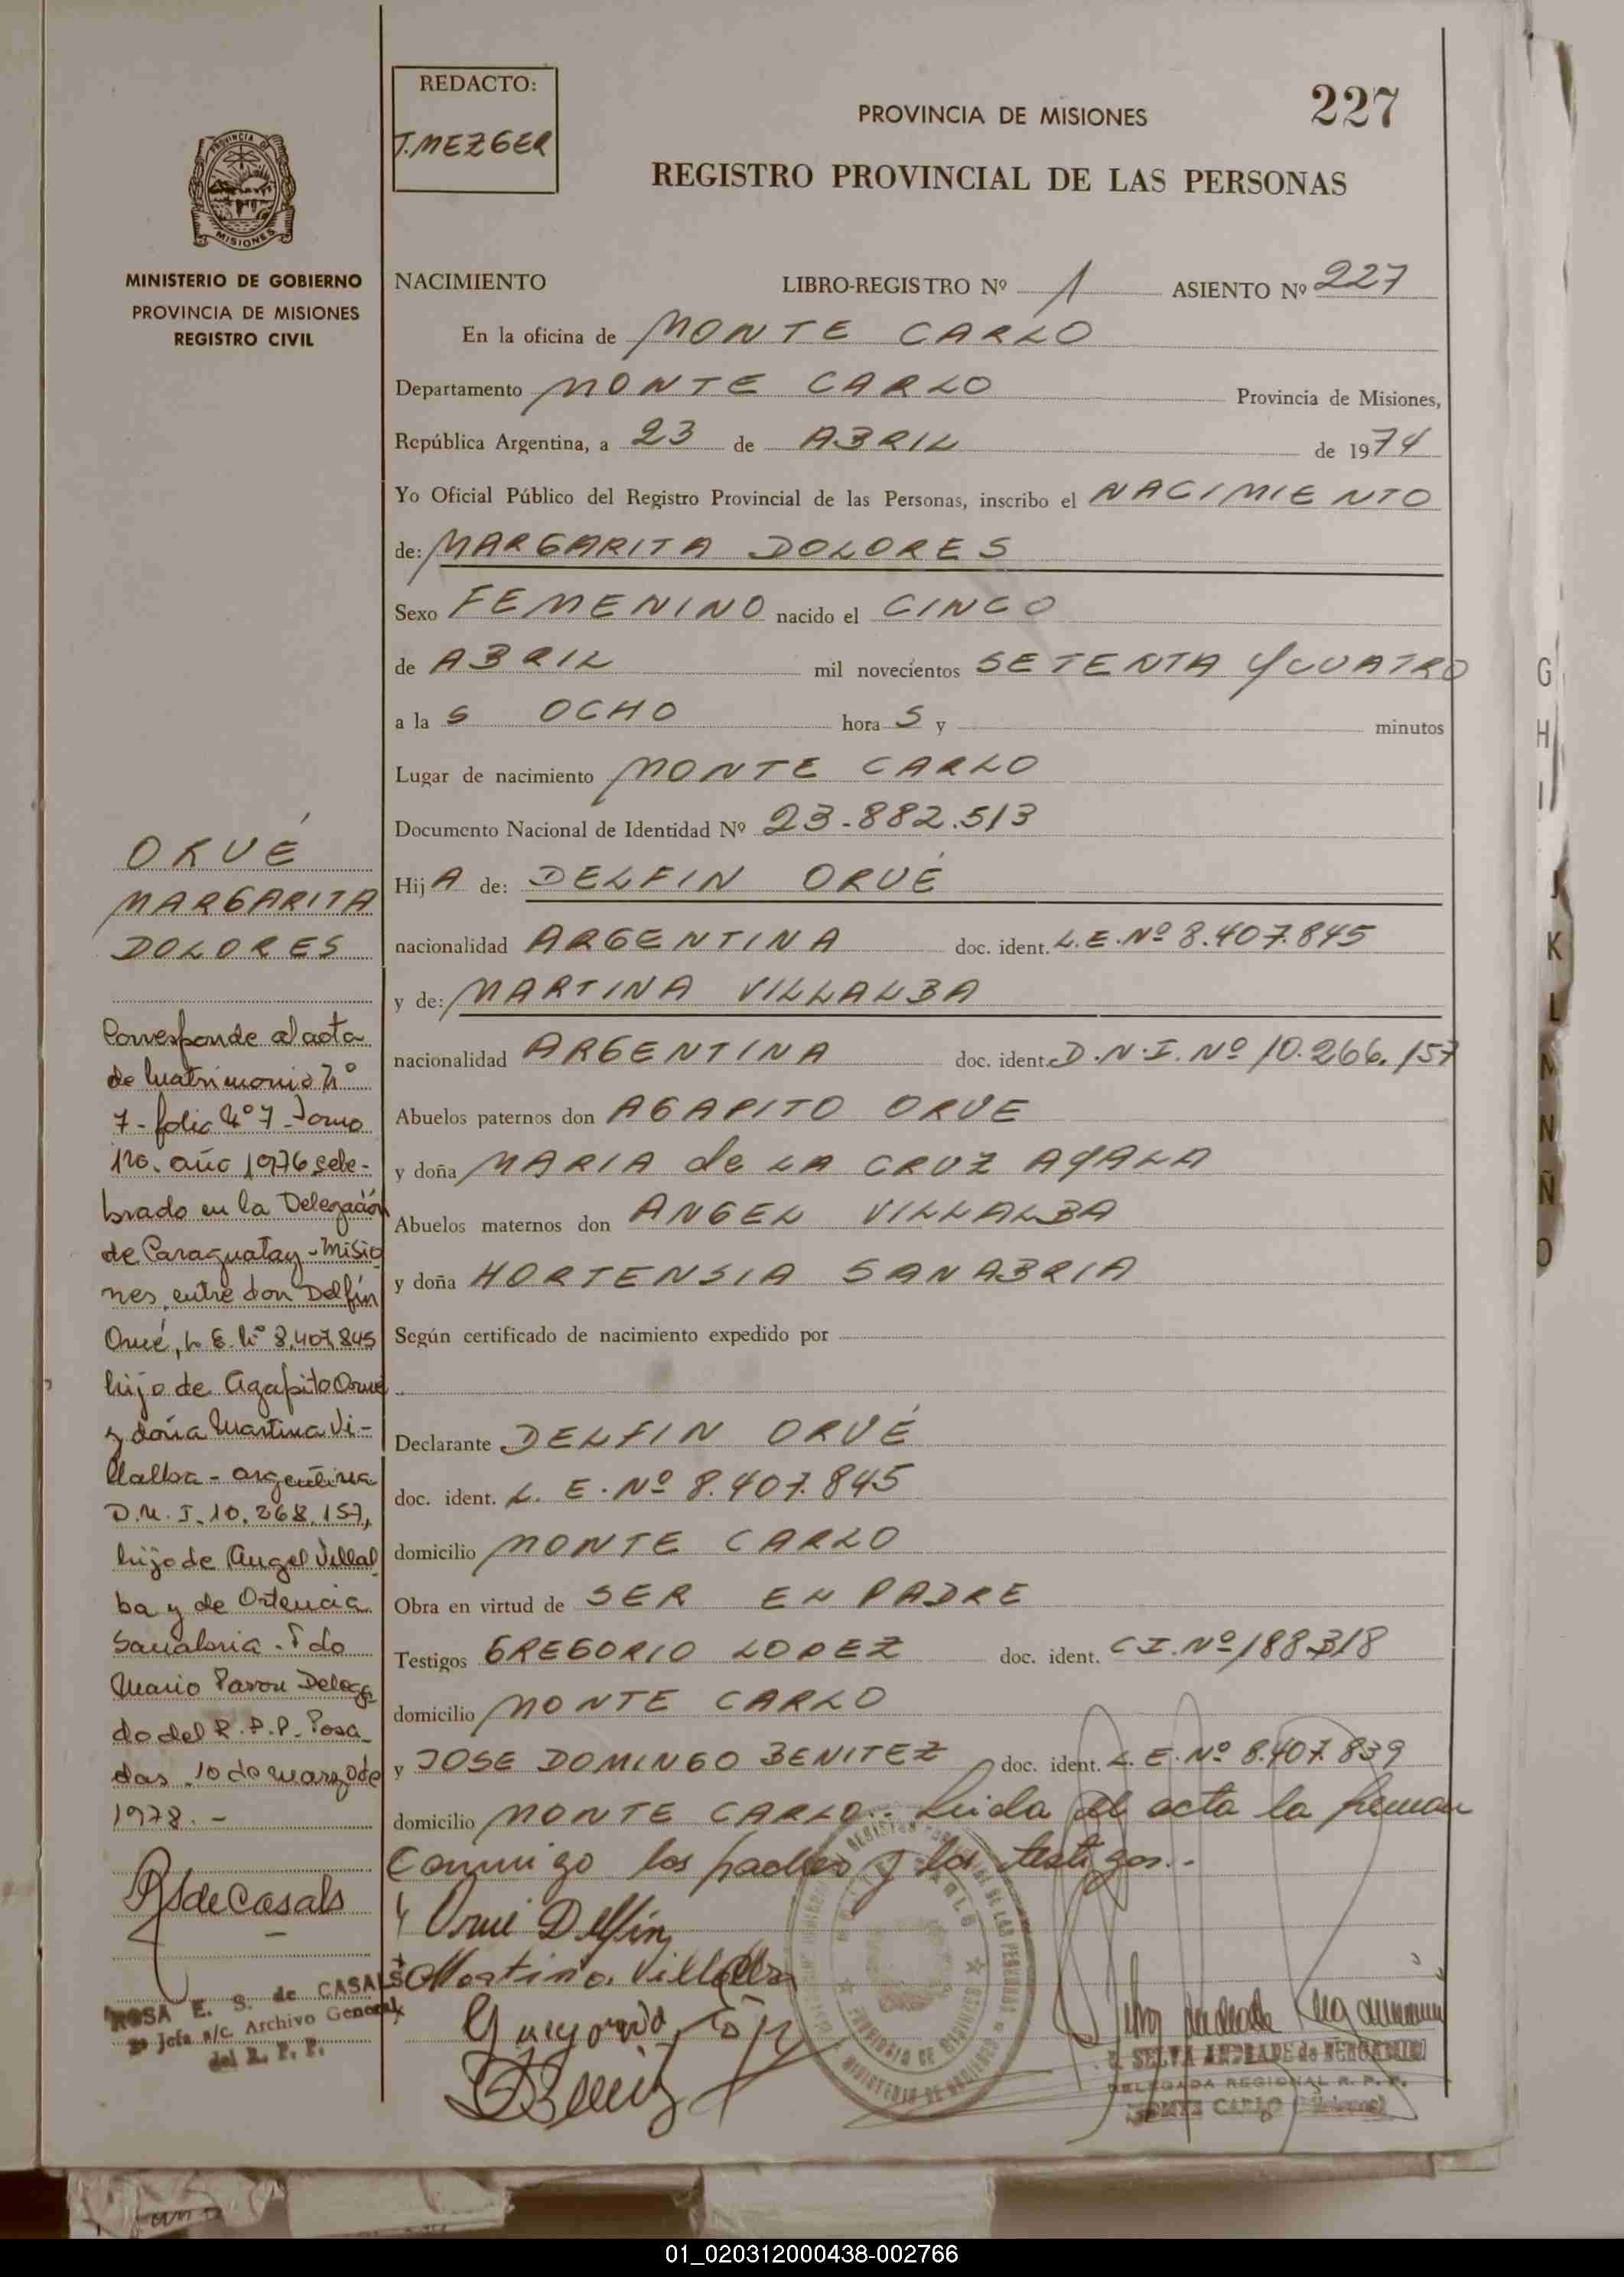 REDACTO:
J. MEZGER
PROVINCIA DE MISIONES
227
REGISTRO PROVINCIAL DE LAS PERSONAS
PROVINCIA DE
MISIONES
MINISTERIO DE GOBIERNO
PROVINCIA DE MISIONES
REGISTRO CIVIL
NACIMIENTO LIBRO-REGISTRO Nº 1 ASIENTO Nº 227
En la oficina de MONTE CARLO
Departamento MONTE CARLO Provincia de Misiones,
República Argentina, a 23 de ABRIL de 1974
Yo Oficial Público del Registro Provincial de las Personas, inscribo el NACIMIENTO
de: MARGARITA DOLORES
Sexo FEMENINO nacido el CINCO
de ABRIL mil novecientos SETENTA Y CUATRO
a la S OCHO hora S y minutos
Lugar de nacimiento MONTE CARLO
Documento Nacional de Identidad Nº 23-882.513
Hij A de: DELFIN ORUÉ
nacionalidad ARGENTINA doc. ident. L.E. Nº 8.407.845
y de: MARTINA VILLALBA
nacionalidad ARGENTINA doc. ident. D.N.I. Nº 10.266.157
Abuelos paternos don AGAPITO ORUE
y doña MARIA de LA CRUZ AYALA
Abuelos maternos don ANGEL VILLALBA
y doña HORTENSIA SANABRIA
Según certificado de nacimiento expedido por
Declarante DELFIN ORUÉ
doc. ident. L. E. Nº 8.407.845
domicilio MONTE CARLO
Obra en virtud de SER EL PADRE
Testigos GREGORIO LOPEZ doc. ident. C.I. Nº 188.318
domicilio MONTE CARLO
y JOSE DOMINGO BENITEZ doc. ident. L. E. Nº 8.407.839
domicilio MONTE CARLO.- Leida el acta la firman
Conmigo los padres y los testigos.-
Orué Delfin
Martina Villalba
SELVA ANDRADE de BERGAMINI
DELEGADA REGIONAL R. P. P.
MONTE CARLO (Misiones)
ORUÉ
MARGARITA
DOLORES
Corresponde al acta
de Matrimonio Nº
7- folio Nº 7 - Tomo
1ro. año 1976 cele-
brado en la Delegación
de Caraguatay - Misio
nes, entre don Delfín
Orué, L. E. Nº 8.407.845
hijo de Agapito Orué
y doña Martina Vi-
llalba - argentina
D.N.I. 10.268.157,
hijo de Angel Villal
ba y de Ortencia
Sanabria. Fdo
Mario Pavon Delega
do del R.P.P. Posa
das 10 de marzo de
1978. -
RSdeCasals
ROSA E. S. de CASALS
2º Jefa a/c. Archivo General
del R. P. P.
G
H
I
J
K
L
M
N
Ñ
O
01_020312000438-002766